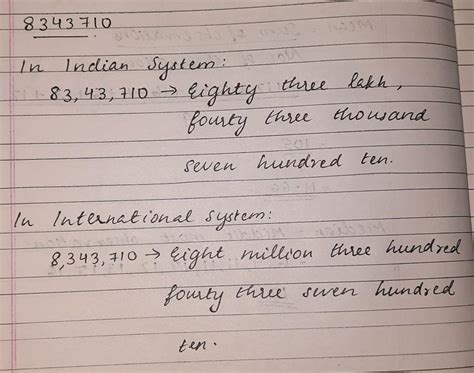 8343710
In Indian System:
83,43,710 → Eighty three lakh,
fourty three thousand
seven hundred ten.
In International System:
8,343,710 → Eight million three hundred
fourty three seven hundred
ten.